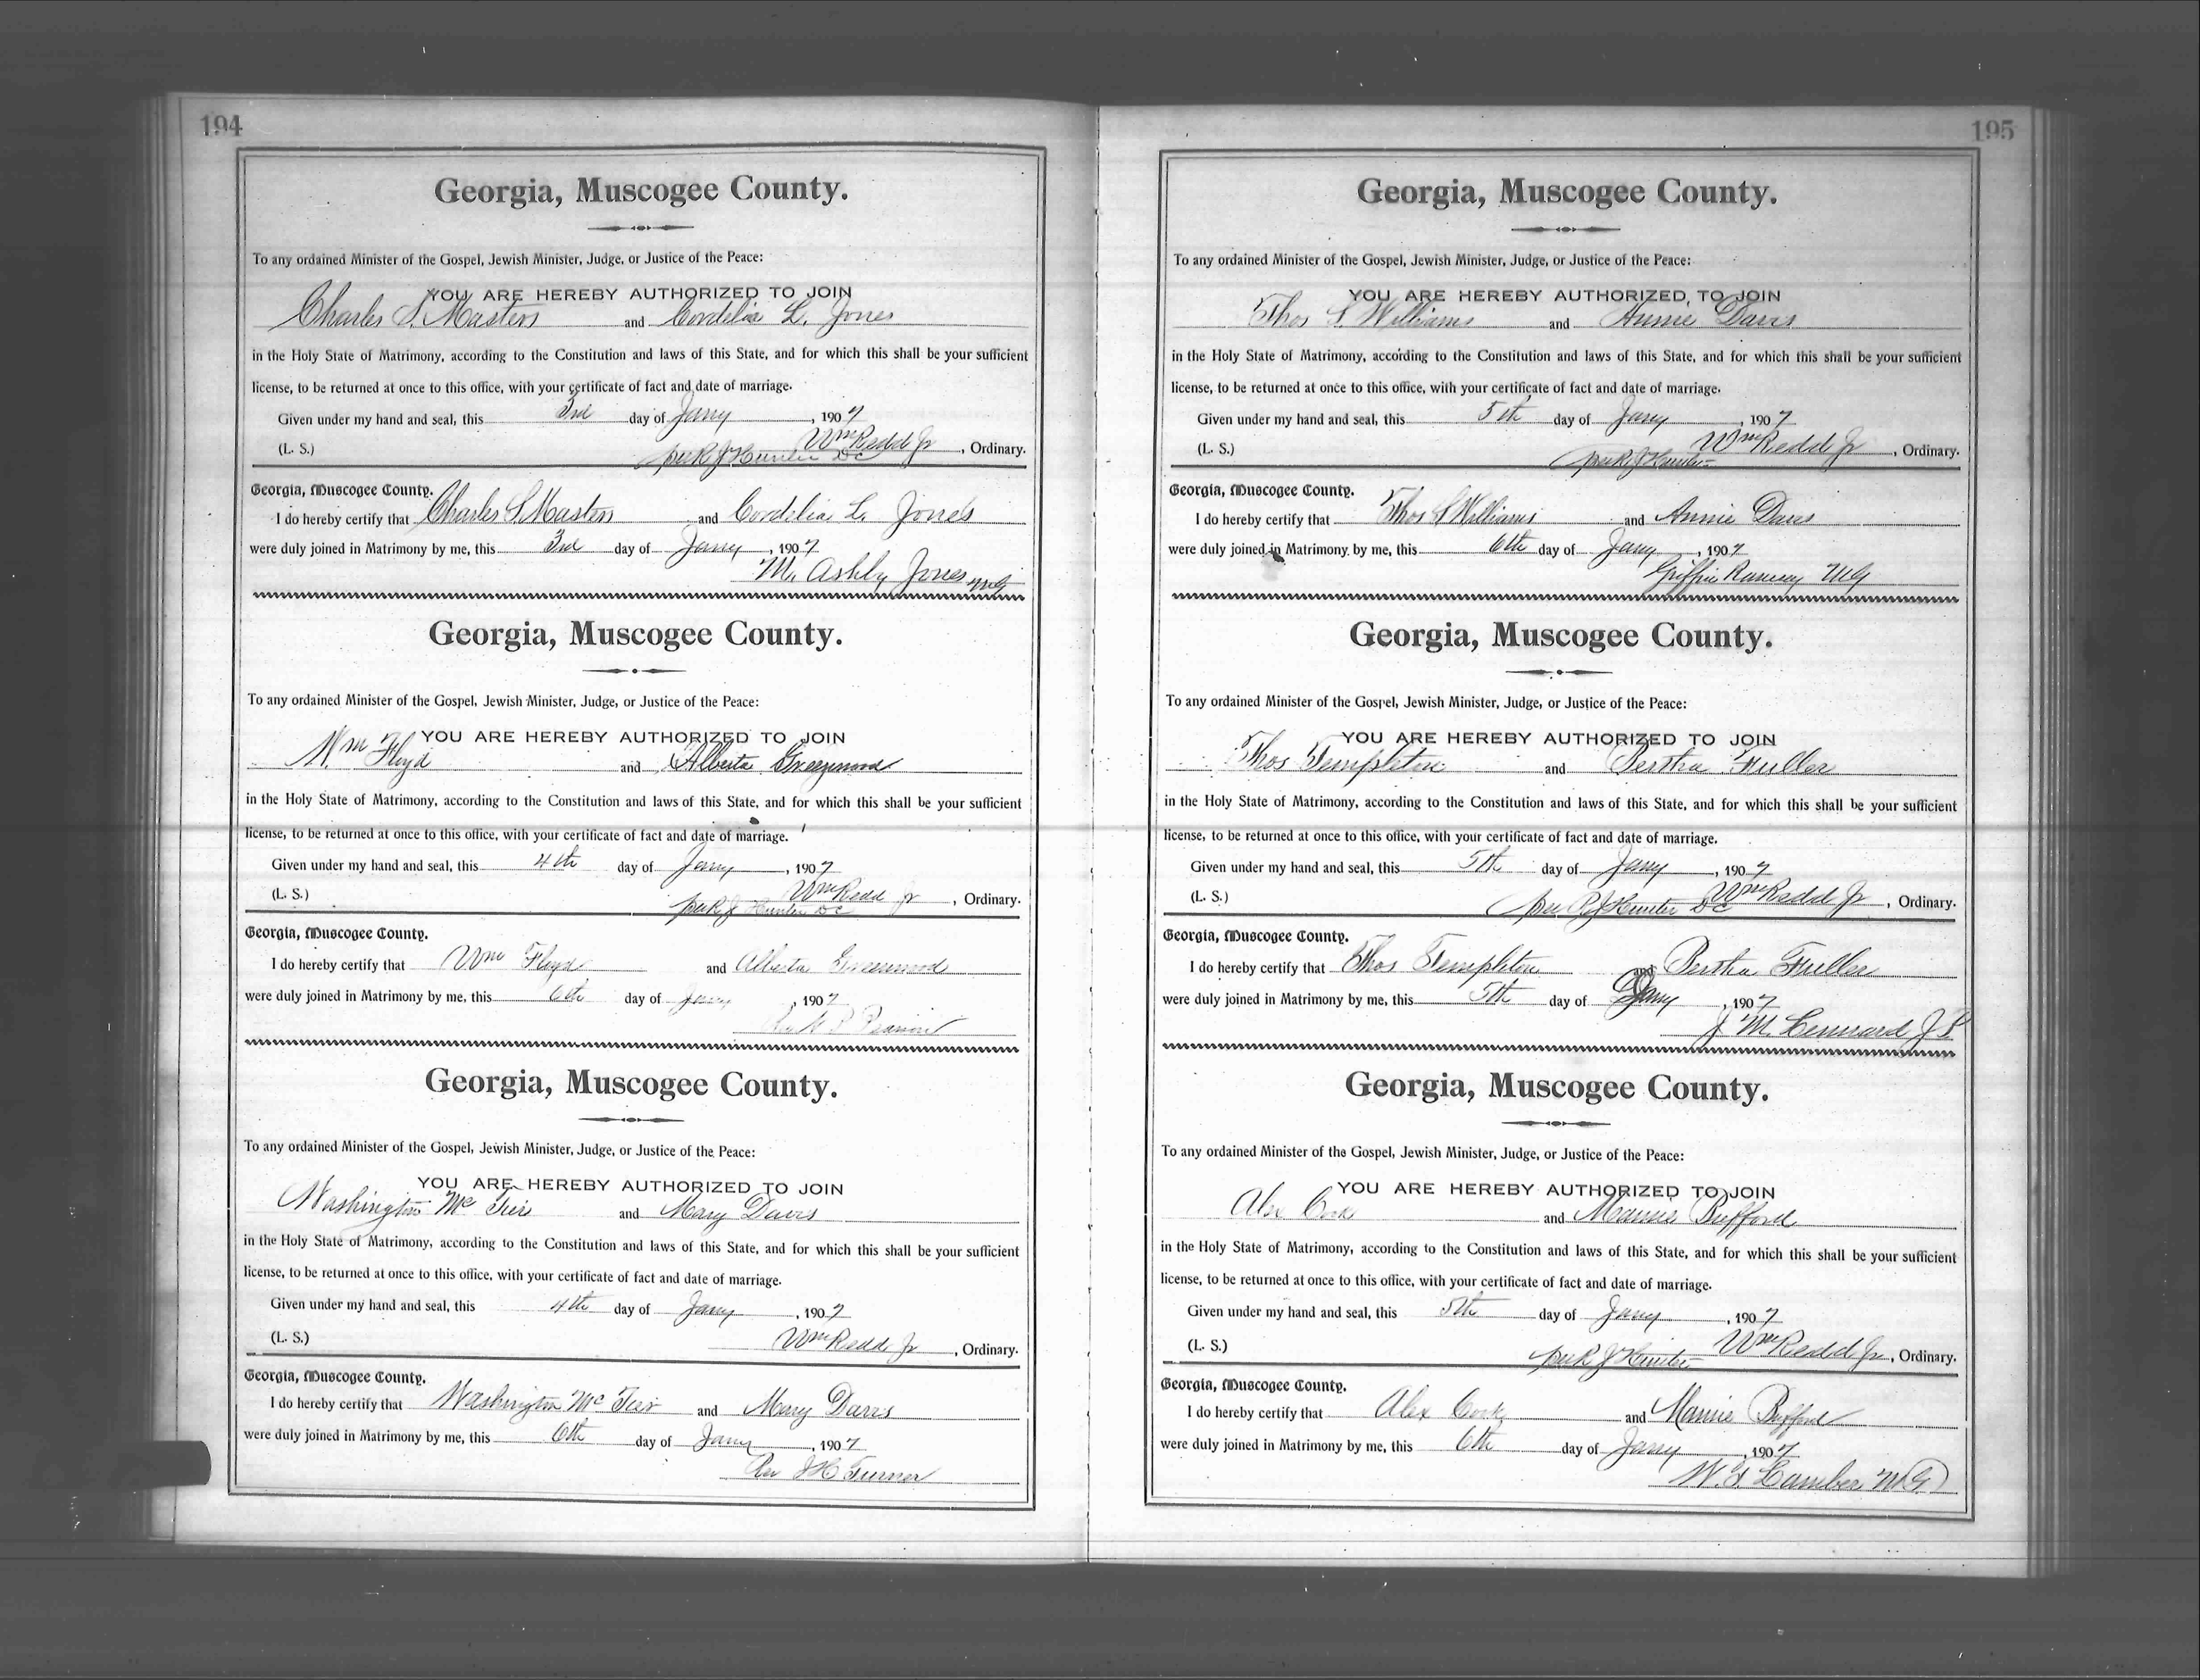 194
Georgia, Muscogee County.
To any ordained Minister of the Gospel, Jewish Minister, Judge, or Justice of the Peace:
YOU ARE HEREBY AUTHORIZED TO JOIN
Charles S. Masters and Cordelia L. Jones
in the Holy State of Matrimony, according to the Constitution and laws of this State, and for which this shall be your sufficient
license, to be returned at once to this office, with your certificate of fact and date of marriage.
Given under my hand and seal, this 3rd day of Jany, 1907
(L. S.) Wm Redd Jr, Ordinary.
per R J Hunter DC
Georgia, Muscogee County.
I do hereby certify that Charles S Masters and Cordelia L. Jones
were duly joined in Matrimony by me, this 3rd day of Jany, 1907
M. Ashby Jones MG
Georgia, Muscogee County.
To any ordained Minister of the Gospel, Jewish Minister, Judge, or Justice of the Peace:
YOU ARE HEREBY AUTHORIZED TO JOIN
Wm Floyd and Alberta Greenwood
in the Holy State of Matrimony, according to the Constitution and laws of this State, and for which this shall be your sufficient
license, to be returned at once to this office, with your certificate of fact and date of marriage.
Given under my hand and seal, this 4th day of Jany, 1907
(L. S.) Wm Redd Jr, Ordinary.
per R J Hunter DC
Georgia, Muscogee County.
I do hereby certify that Wm Floyd and Alberta Greenwood
were duly joined in Matrimony by me, this 6th day of Jany, 1907
Rev
Georgia, Muscogee County.
To any ordained Minister of the Gospel, Jewish Minister, Judge, or Justice of the Peace:
YOU ARE HEREBY AUTHORIZED TO JOIN
Washington McTier and Mary Davis
in the Holy State of Matrimony, according to the Constitution and laws of this State, and for which this shall be your sufficient
license, to be returned at once to this office, with your certificate of fact and date of marriage.
Given under my hand and seal, this 4th day of Jany, 1907
(L. S.) Wm Redd Jr, Ordinary.
Georgia, Muscogee County.
I do hereby certify that Washington McTier and Mary Davis
were duly joined in Matrimony by me, this 6th day of Jany, 1907
Rev J H Turner
195
Georgia, Muscogee County.
To any ordained Minister of the Gospel, Jewish Minister, Judge, or Justice of the Peace:
YOU ARE HEREBY AUTHORIZED TO JOIN
Thos S. Williams and Annie Davis
in the Holy State of Matrimony, according to the Constitution and laws of this State, and for which this shall be your sufficient
license, to be returned at once to this office, with your certificate of fact and date of marriage.
Given under my hand and seal, this 5th day of Jany, 1907
(L. S.) Wm Redd Jr, Ordinary.
per R J Hunter
Georgia, Muscogee County.
I do hereby certify that Thos S Williams and Annie Davis
were duly joined in Matrimony by me, this 6th day of Jany, 1907
Griffin Ramsey MG
Georgia, Muscogee County.
To any ordained Minister of the Gospel, Jewish Minister, Judge, or Justice of the Peace:
YOU ARE HEREBY AUTHORIZED TO JOIN
Thos Templeton and Bertha Fuller
in the Holy State of Matrimony, according to the Constitution and laws of this State, and for which this shall be your sufficient
license, to be returned at once to this office, with your certificate of fact and date of marriage.
Given under my hand and seal, this 5th day of Jany, 1907
(L. S.) Wm Redd Jr, Ordinary.
per R J Hunter DC
Georgia, Muscogee County.
I do hereby certify that Thos Templeton and Bertha Fuller
were duly joined in Matrimony by me, this 5th day of Jany, 1907
J M Lennard J P
Georgia, Muscogee County.
To any ordained Minister of the Gospel, Jewish Minister, Judge, or Justice of the Peace:
YOU ARE HEREBY AUTHORIZED TO JOIN
Alex Cook and Mamie Bufford
in the Holy State of Matrimony, according to the Constitution and laws of this State, and for which this shall be your sufficient
license, to be returned at once to this office, with your certificate of fact and date of marriage.
Given under my hand and seal, this 5th day of Jany, 1907
(L. S.) Wm Redd Jr, Ordinary.
per R J Hunter
Georgia, Muscogee County.
I do hereby certify that Alex Cook and Mamie Bufford
were duly joined in Matrimony by me, this 6th day of Jany, 1907
MG